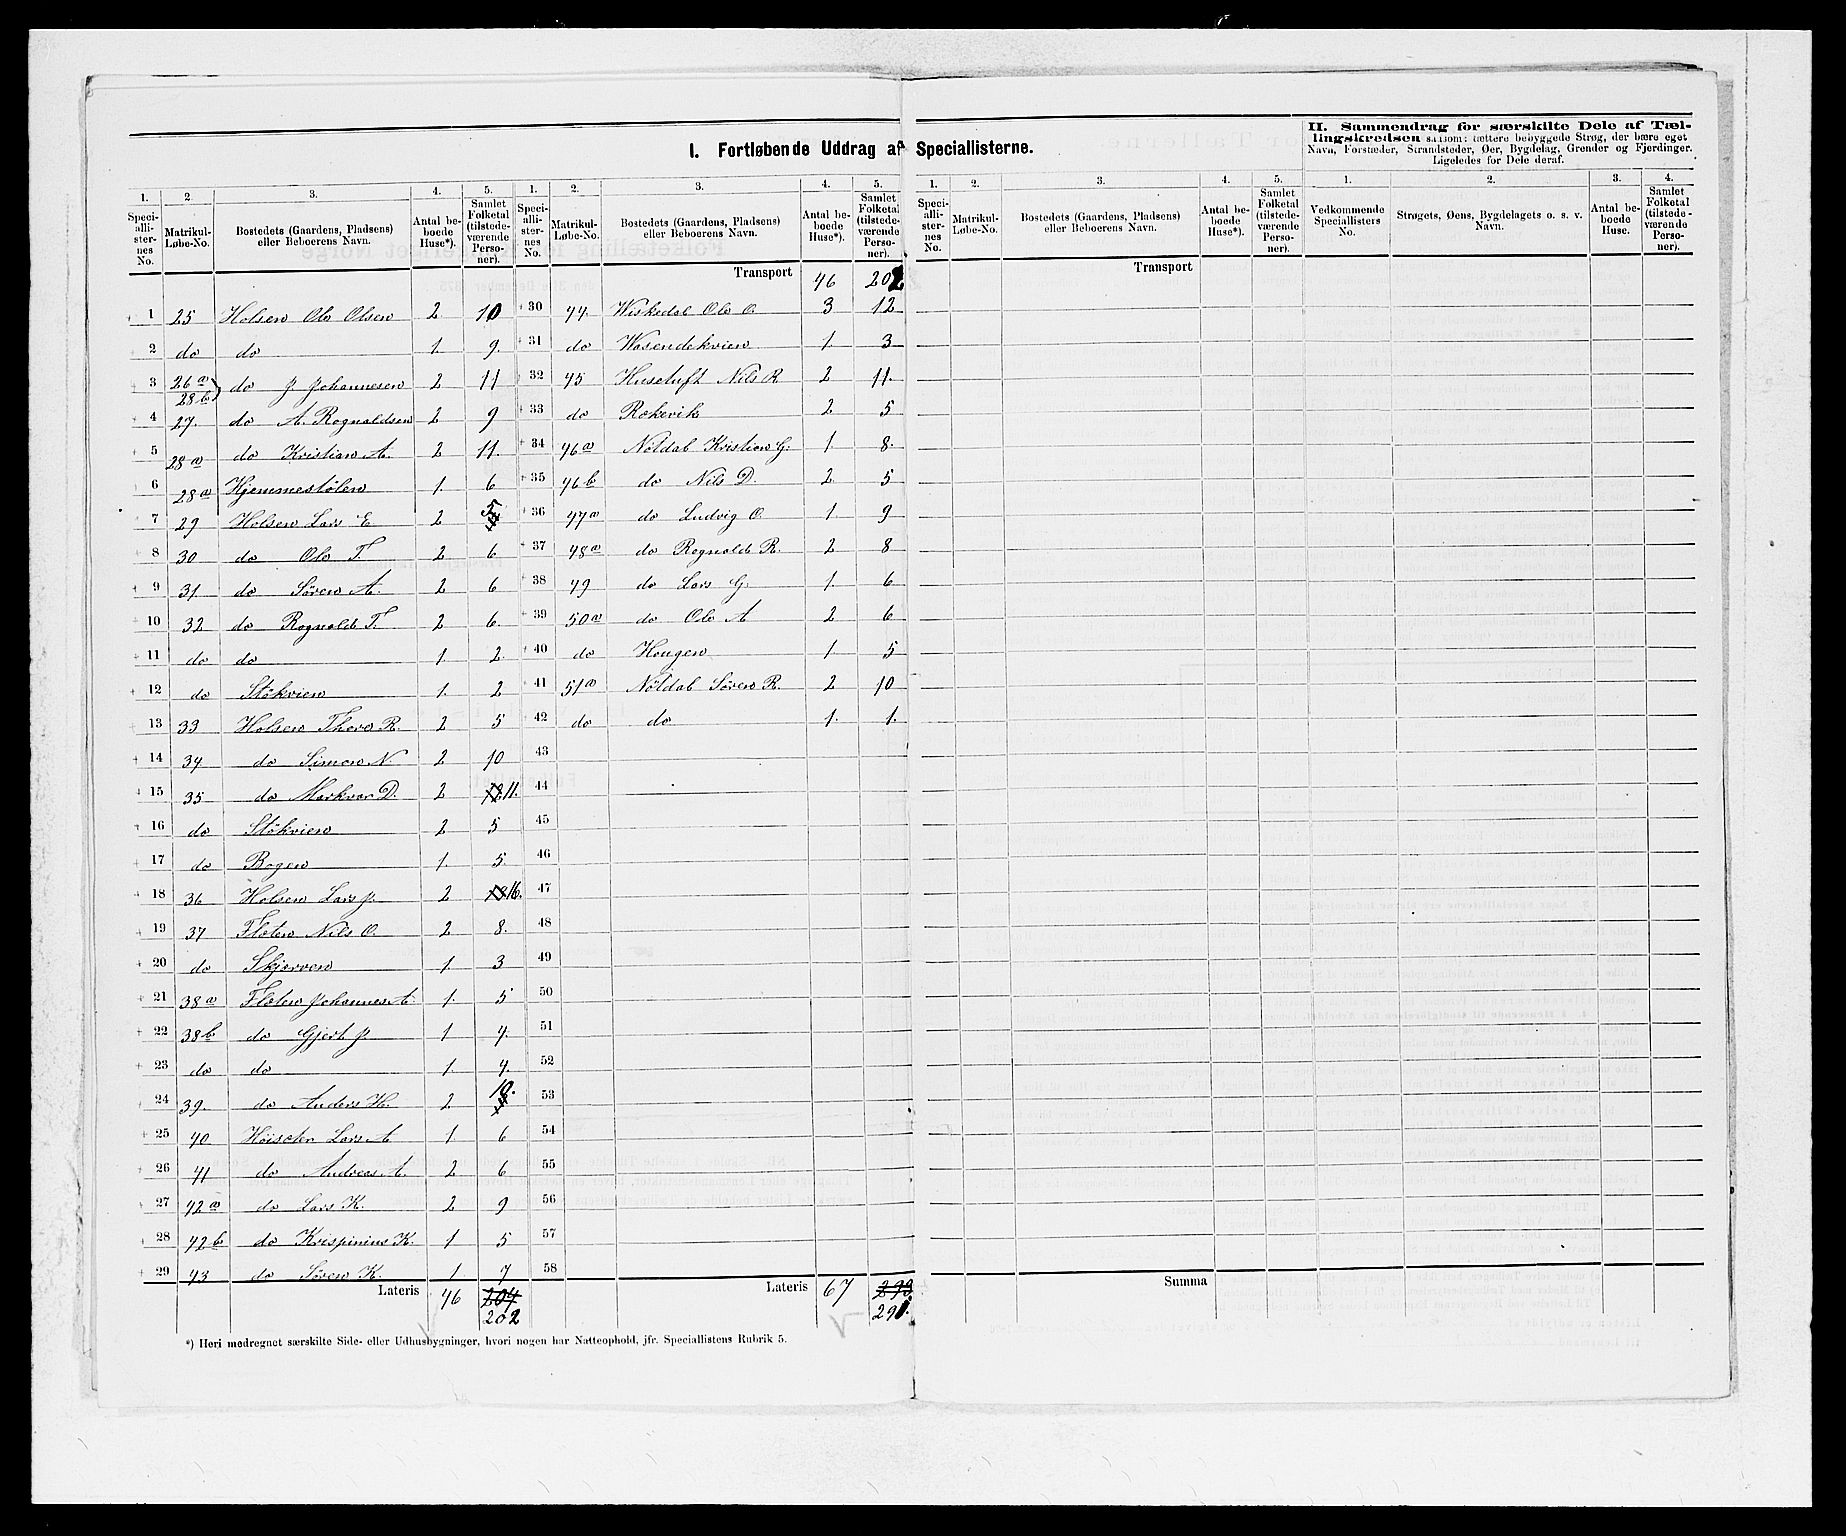 I. Fortløbende Uddrag af Speciallisterne.
II. Sammendrag for særskilte Dele af Tæl-
lingskredsen saasom: tættere bebyggede Strøg, der bære eget
Navn, Forstæder, Strandsteder, Øer, Bygdelag, Grender og Fjerdinger.
Ligeledes for Dele deraf.
1. 2. 3. 4. 5. 1. 2. 3. 4. 5. 1. 2. 3. 4. 5. 1. 2. 3. 4.
Speci-alli-ster-nes No. Matrikul-Løbe-No. Bostedets (Gaardens, Pladsens) eller Beboerens Navn. Antal be-boede Huse*). Samlet Folketal (tilstede-værende Perso-ner).
Speci-alli-ster-nes No. Matrikul-Løbe-No. Bostedets (Gaardens, Pladsens) eller Beboerens Navn. Antal be-boede Huse*). Samlet Folketal (tilstede-værende Perso-ner).
Speci-alli-ster-nes No. Matrikul-Løbe-No. Bostedets (Gaardens, Pladsens) eller Beboerens Navn. Antal be-boede Huse*). Samlet Folketal (tilstede-værende Perso-ner).
Vedkommende Speciallisters No. Strøgets, Øens, Bygdelagets o. s. v. Navn. Antal be-boede Huse. Samlet Folketal (tilstede-værende Perso-ner).
1 25 Holsen Ole Olsen 2 10
2 do do 1. 9.
3 26a 28b do J Johannesen 2 11
4 27. do A. Rognaldsen 2 9
5 28a do Kristian A. 2 11.
6 28a Hjemmestølen 1. 6
7 29 Holsen Lars E 2 5
8 30 do Ole T. 2 6
9 31 do Søren A. 2 6
10 32 do Rognald T. 2 6.
11 do do 1. 2.
12 do Stökvien 1. 2
13 33 Holsen Thore R. 2 5
14 34 do Simon N 2 10
15 35 do Markvor D. 2 12 11.
16 do Stökvien 2 5
17 do Bogen 1. 5.
18 36 Holsen Lars J. 2 18 16.
19 37 Floten Nils O. 2 8.
20 do Skjerven 1. 3
21 38a Floten Johannes A. 1. 5
22 38b do Gjert J. 1 4.
23 do do 1 4.
24 39. do Anders H. 2 10.
25 40 Høiseter Lars A 1 6
26 41 do Andreas A. 2 6
27 42a do Lars K. 2 9
28 42b do Krispinius K. 1 5
29 43 do Søren K. 1. 7
Lateris 46 204
202
Transport 46 202
30 44. Wiskedal Ole O. 3 12
31 do Wasendekvien 1. 3
32 45 Husetuft Nils R 2 11.
33 do Rækevik 2 5
34 46a Nöldal Kristian G: 1 8.
35 46b do Nils D. 2 5
36 47a do Ludvig O. 1. 9
37 48a do Rognald R. 2 8
38 49 do Lars G. 1. 6
39 50a do Ole A 2 6
40 do Haugen 1. 5
41 51a Nöldal Søren R. 2 10
42 do do 1. 1.
43
44
45
46
47
48
49
50
51
52
53
54
55
56
57
58
Lateris 67 293
291.
Transport
Summa
*) Heri medregnet særskilte Side- eller Udhusbygninger, hvori nogen har Natteophold, jfr. Speciallistens Rubrik 5.